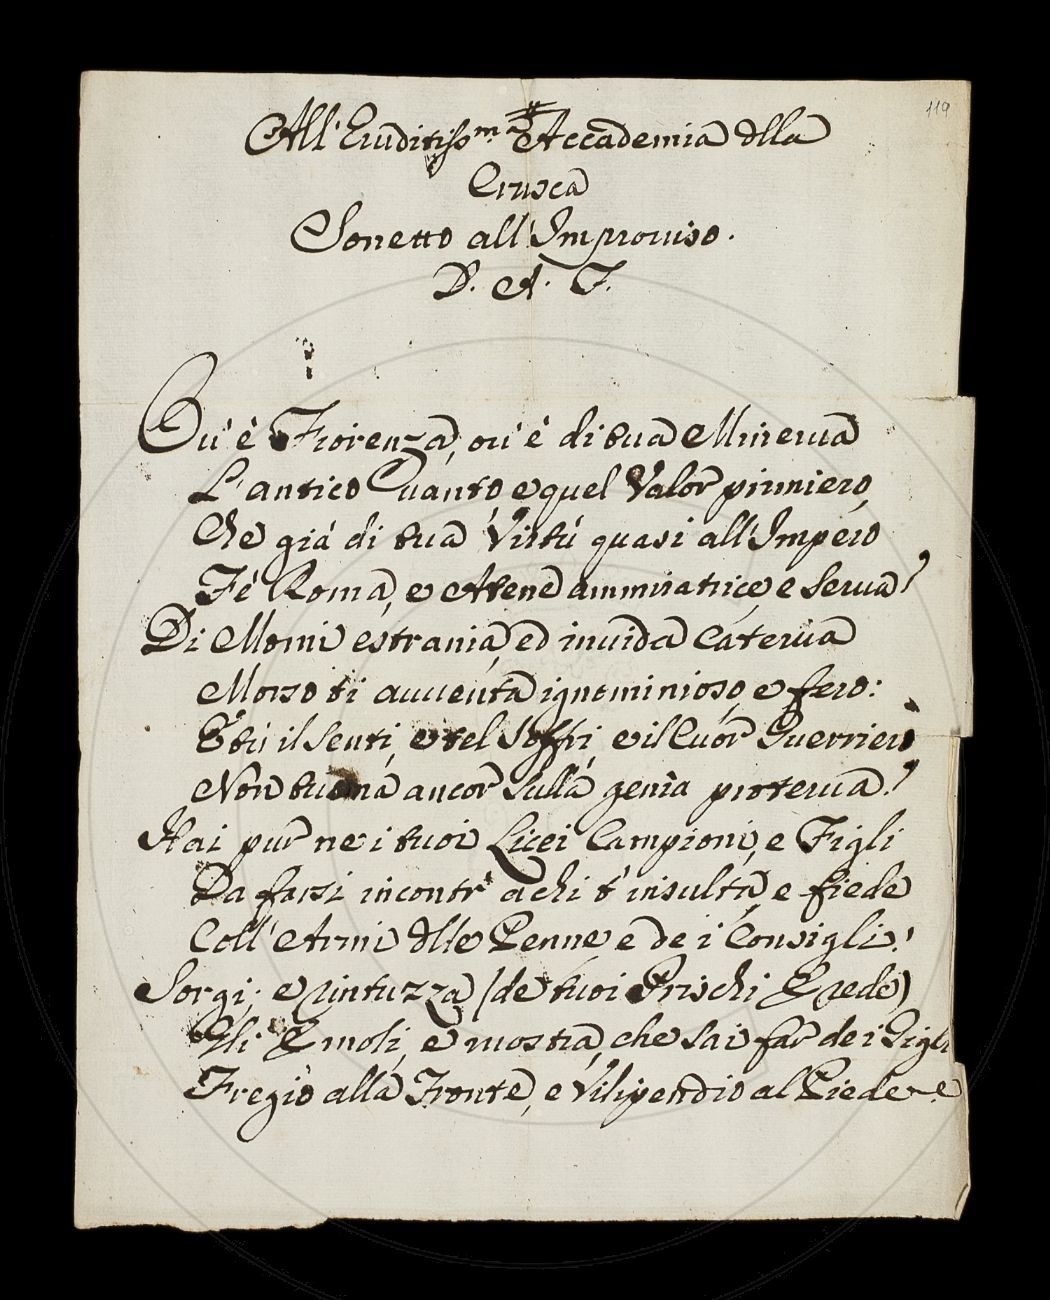 119
All' Eruditiss.ma Accademia dlla
Crusca
Sonetto all' Improuiso.
D. A. F.
Ou' è Fiorenza, ou' è di tua Mineruа
L' antico Vanto, e quel Valor primiero,
Che già di tua Virtú quasi all' Impero
Fé Roma, e Atene ammiratrice, e serua?
Di Momi estrania, ed inuida Caterua
Morso ti auuenta ignominioso, e fero:
E tú il senti, e tel soffri, e il Cuor Guerriero
Non tuona ancor sulla genìa proterua?
Hai pur ne i tuoi Licei Campioni, e Figli
Da farsi incontr' a chi t' insulta, e fiede
Coll' Armi dlle Penne e de i Consigli!
Sorgi; e rintuzza (de tuoi Prischi Erede)
Gli Emoli, e mostra, che sai far de i Gigli
Fregio alla Fronte, e Vilipendio al Piede